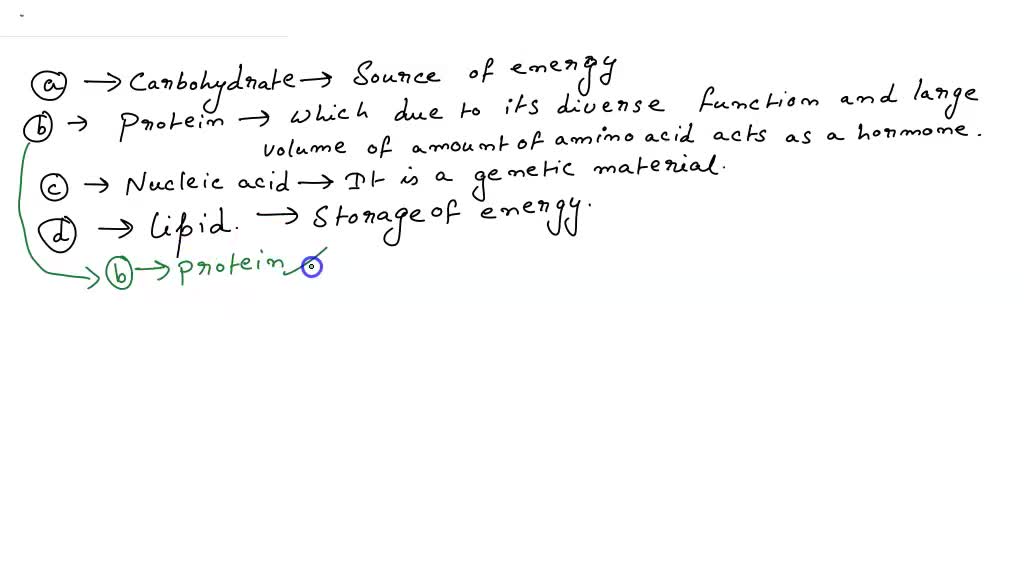 a → Carbohydrate → Source of energy
b → Protein → which due to its diverse function and large
volume of amount of amino acid acts as a hormone.
c → Nucleic acid → It is a genetic material.
d → Lipid. → Storage of energy.
b → protein